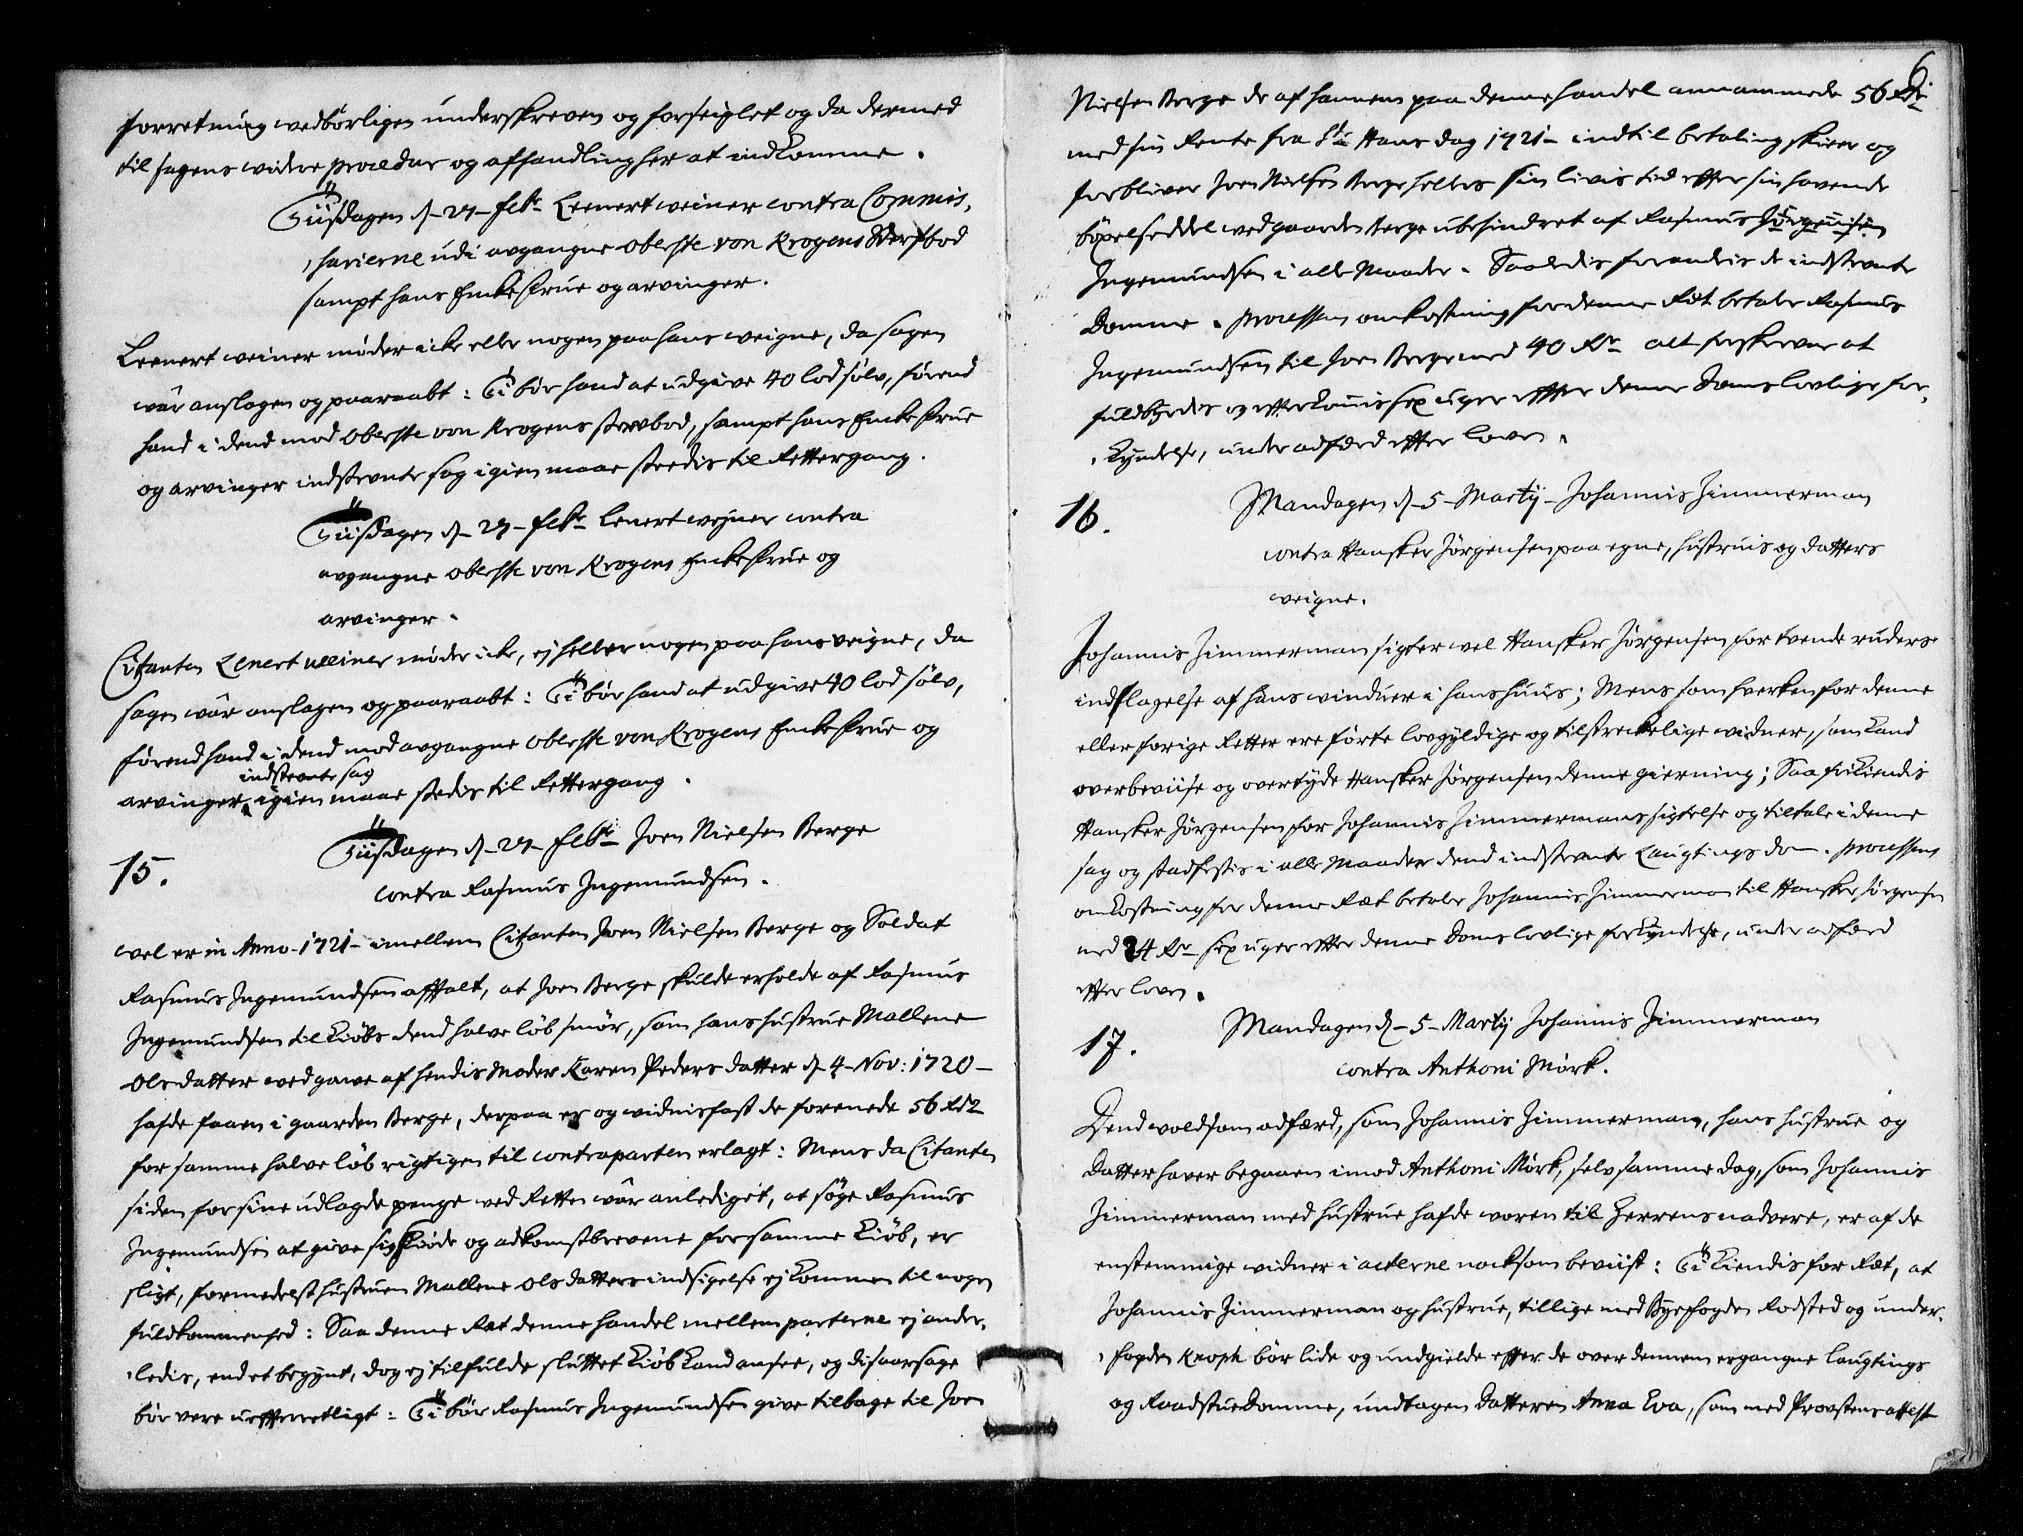 forretning wedbørligen underskreven og forseiglet og da dermed
til sagens widere procedur og afhandling her at indkomme.
Tiisdagen d. 27 Febr. Leenert weiner contra Commis-
sarierne udi avgangne Oberste von Krogens Sterfbod
sampt hans Enckefrue og arvinger.
Leenert weiner møder icke eller nogen paa hans weigne, da sagen
wår anslagen og paaraabt: Ti bør hand at udgive 40 lod sølv, førend
hand i dend mod Oberste von Krogens sterwbod, sampt hans Enckefrue
og arvinger indstevnte sag igien maae stedis til Rettergang.
Tiisdagen d. 27 Febr. Lenert weyner contra
avgangne Oberste von Krogens Enckefrue og
arvinger.
Citanten Lenert weiner møder icke, ej heller nogen paa hans veigne, da
sagen wår anslagen og paaraabt: Ti bør hand at udgive 40 lod sølv,
førend hand i dend mod avgangne Oberste von Krogens Enckefrue og
indstevnte sag
arvinger igien maae stedis til Rettergang.
15. Tiisdagen d. 27 Febr. Joen Nielsen Berge
contra Rasmus Ingemundsen.
wel er in Anno 1721 imellem Citanten Joen Nielsen Berge og Soldat
Rasmus Ingemundsen afftalt, at Joen Berge skulde erholde af Rasmus
Ingemundsen til Kiøbs dend halve løb smør, som hans hustrue Mallene
Olsdatter wed gawe af hendis Moder Karen Peders datter d. 4 Nov: 1720
hafde faaen i gaarden Berge, derpaa er og widnisfast de forenede 56 Rdr
for samme halve løb rigtigen til contraparten erlagt: Mens da Citanten
siden for sine udlagde penge ved Retten wår anlediget, at søge Rasmus
Ingemundsen at give sig Skiøde og adkomstbrevene for samme Kiøb, er
sligt, formedelst hustruen Mallene Olsdatters indsigelse ej kommen til nogen
fuldkommenhed: Saa denne Ræt denne handel mellem parterne ej ander-
ledis, end et begynt, dog ej tilfulde sluttet Kiøb kand ansee, og disaarsage
bør vere uefterretligt: Ti bør Rasmus Ingemundsen give tilbage til Joen
6
Nielsen Berge de af hannem paa denne handel annammede 56 Rdr
med sin Rente fra St. Hans dag 1721 indtil betaling skeer og
forbliver Joen Nielsen Berge hellers sin livis tid efter sin havende
böxelseddel wed gaarden Berge ubehindret af Rasmus Jørgensen
Ingemundsen i alle Maader. Saaledis forandris de indstevnte
Domme. Processens omkostning for denne Ræt betaler Rasmus
Ingemundsen til Joen Berge med 40 Rdr alt forskrevne at
fuldbyrdes og efterkommis sex uger efter denne Doms lovlige for-
kyndelse, under adfærd efter loven.
16. Mandagen d. 5 Martij Johannis Zimmerman
contra Hansker Jørgensen paa egne, hustruis og datters
weigne.
Johannis Zimmerman sigter wel Hansker Jørgensen for tvende ruders
indslagelse af hans winduer i hans huus; Mens som hverken for denne
eller forige Retter ere førte lovgyldige og tilstreckelige widner, som kand
overbeviise og overtyde Hansker Jørgensen denne gierning; Saa frikiendis
Hansker Jørgensen for Johannis Zimmermans sigtelse og tiltale i denne
sag og stadfestis i alle Maader dend indstevnte Laugtings dom. Processens
omkostning for denne Ræt betaler Johannis Zimmerman til Hansker Jørgensen
med 24 Rdr sex uger efter denne Doms lovlige forkyndelse, under adfærd
efter loven.
17. Mandagen d. 5 Martij Johannis Zimmerman
contra Anthoni Mørk.
Dend woldsom adfærd, som Johannis Zimmerman, hans hustrue og
Datter haver begaaen imod Anthoni Mørk, selv samme dag, som Johannis
Zimmerman med hustrue hafde waren til Herrens nadvere, er af de
enstemmige widner i acterne nocksom beviist: Ti kiendis for Ræt, at
Johannis Zimmerman og hustrue, tillige med Byefogden Rodsted og under-
fogden Kroph bør lide og undgielde efter de over dennem ergangne laugtings
og Raadstue Domme, undtagen Datteren Anna Eva, som med Provstens attest